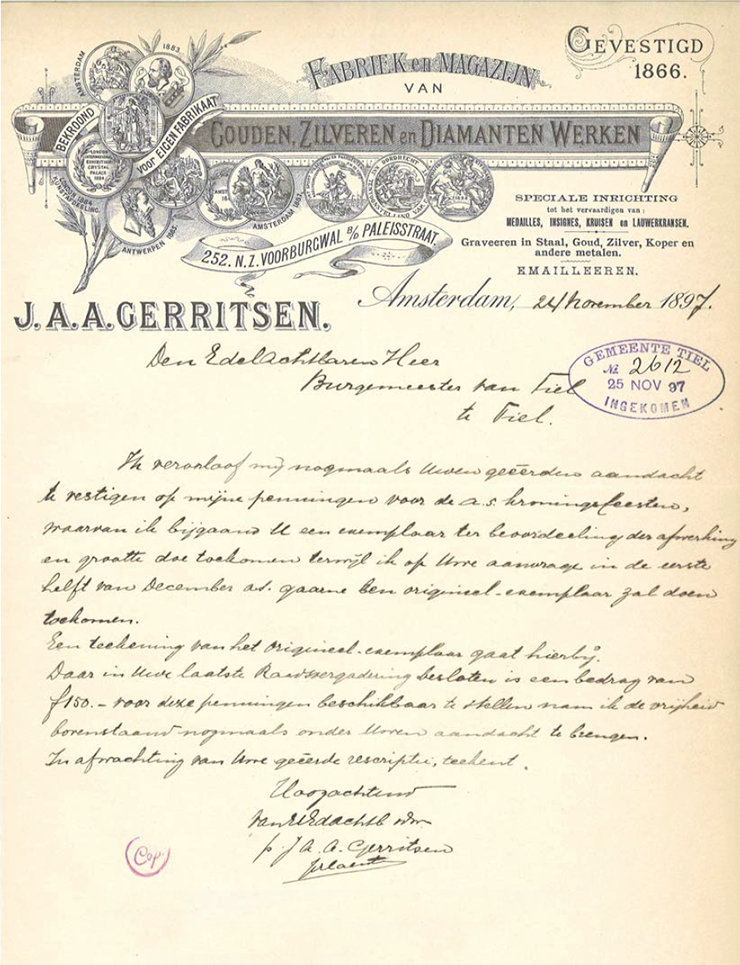 GEVESTIGD
1866.
FABRIEK en MAGAZIJN
VAN
GOUDEN, ZILVEREN en DIAMANTEN WERKEN
AMSTERDAM
1883.
BEKROOND
VOOR EIGEN FABRIKAAT
LONDON
INTERNATIONAL
EXHIBITION
CRYSTAL
PALACE
1884
AMSTERDAM 1883
ANTWERPEN 1885
252. N.Z. VOORBURGWAL B/D PALEISSTRAAT.
SPECIALE INRICHTING
tot het vervaardigen van:
MEDAILLES, INSIGNES, KRUISEN en LAUWERKRANSEN.
Graveeren in Staal, Goud, Zilver, Koper en
andere metalen.
EMAILLEEREN.
J.A.A. GERRITSEN.
Amsterdam, 24 November 1897.
GEMEENTE TIEL
No 2612
25 NOV 97
INGEKOMEN
Den Edelachtbaren Heer
Burgemeester van Tiel
te Tiel.
Ik veroorloof mij nogmaals Uwen geëerden aandacht
te vestigen op mijne penningen voor de a.s. kroningsfeesten,
waarvan ik bijgaand U een exemplaar ter beoordeeling der afwerking
en grootte doe toekomen terwijl ik op Uwe aanvrage in de eerste
helft van December a.s. gaarne een origineel-exemplaar zal doen
toekomen.
Een teekening van het origineel-exemplaar gaat hierbij.
Daar in Uwe laatste Raadsvergadering besloten is een bedrag van
f150.- voor deze penningen beschikbaar te stellen nam ik de vrijheid
bovenstaand nogmaals onder Uwen aandacht te brengen.
In afwachting van Uwe geëerde rescriptie, teekent.
Hoogachtend
van UEdachtb
p. J A. A. Gerritsen
Cop.